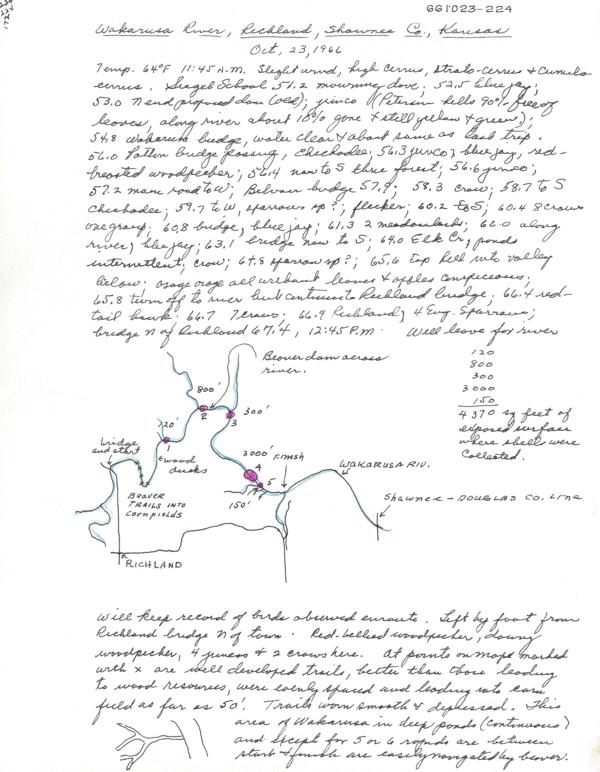 661023-224
Wakarusa River, Richland, Shawnee Co., Kansas
Oct, 23, 1966
Temp. 64°F 11:45 A.M. Slight wind, high cirrus, strato-cirrus & Cumulo
cirrus. Seagel School 51.2 mourning dove; 52.5 blue jay;
53.0 N end proposed dam (oed); junco (Peterson hills 90% free of
leaves, along river about 10% gone & still yellow & green);
54.8 Wakarusa bridge, water clear & about same as last trip.
56.0 Patton bridge crossing, chickadee; 56.3 junco; blue jay, red-
breasted woodpecker; 56.4 now to S thru forest; 56.6 junco;
57.2 main road to W; Belvoir bridge 57.9; 58.3 crow; 58.7 to S
Chickadee; 59.7 to W, sparrows sp?; flicker; 60.2 E&S; 60.4 8 crows
one group; 60.8 bridge, blue jay; 61.3 2 meadowlarks; 62.0 along
river, blue jay; 63.1 bridge now to S; 64.0 Elk Cr., ponds
intermittent; crow; 64.8 sparrow sp?; 65.6 top hill into valley
below; osage orange all without leaves & apples conspicuous;
65.8 turn off to river but continue to Richland bridge; 66.4 red-
tail hawk. 66.7 7 crows; 66.9 Richland; 4 Eng. Sparrows;
bridge N of Richland 67.4, 12:45 P.M. Will leave for river
120
800
300
3000
150
4370 sq feet of
exposed surface
where shell were
collected.
Beaver dam across
river.
800'
2
300'
3
120'
1
bridge
and start
wood
ducks
3000'
4
Finish
5
150'
Wakarusa Riv.
Beaver
trails into
cornfields
Shawnee - Douglas Co. Line
Richland
Will keep record of birds observed enroute. Left by foot from
Richland bridge N of town. Red-bellied woodpecker, downy
woodpecker, 4 juncos & 2 crows here. At points on maps marked
with x are well developed trails, better than those leading
to wood resources, were evenly spaced and leading into corn
field as far as 50'. Trails worn smooth & depressed. This
area of Wakarusa in deep ponds (continuous)
and except for 5 or 6 rapids are between
start & finish are easily navigated by beaver.